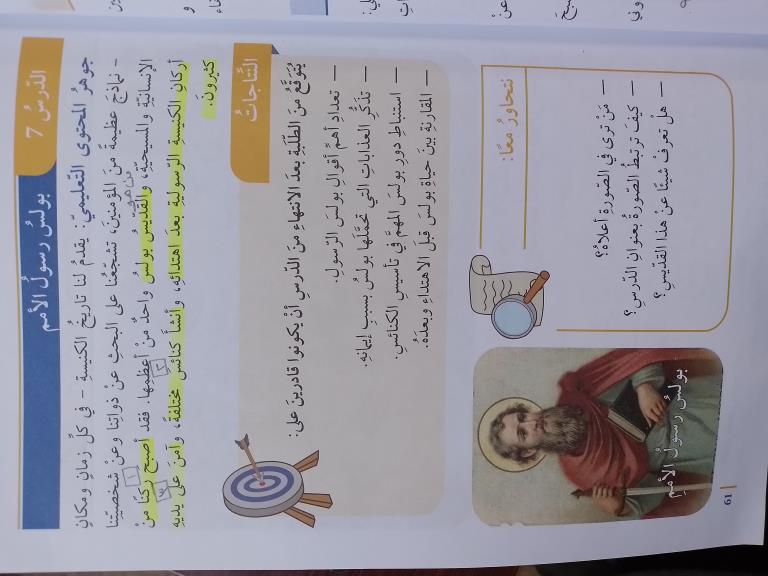 الدّرسُ 7
بولسُ رسولُ الأممِ
جوهرُ المحتوى التّعليميّ: يقدمُ لنا تاريخُ الكنيسةِ - في كلِّ زمانٍ ومكانٍ
- نماذجَ عظيمةً منَ المؤمنينَ، تشجّعُنا على البحثِ عنْ ذواتِنا وعنْ شخصيّتِنا
الإنسانيّةِ والمسيحيّةِ، والقدّيسُ بولسُ واحدٌ منْ أعظمِها. فقد أصبحَ ركنًا منْ
أركانِ الكنيسةِ الرّسوليةِ بعدَ اهتدائِهِ، وأنشأَ كنائسَ مختلفةً، وآمنَ على يديهِ
كثيرونَ.
النّتاجاتُ
يُتَوَقَّعُ منَ الطّلبةِ بعدَ الانتهاءِ منَ الدّرسِ أنْ يكونوا قادرينَ على:
— تعدادِ أهمِّ أقوالِ بولسَ الرّسولِ.
— تذكّرِ العذاباتِ التي تحمَّلَها بولسُ بسببِ إيمانِهِ.
— استنباطِ دورِ بولسَ المهمِّ في تأسيسِ الكنائسِ.
— المقارنةِ بينَ حياةِ بولسَ قبلَ الاهتداءِ وبعدَهُ.
نتحاورُ معًا:
— مَنْ ترى في الصّورةِ أعلاهُ؟
— كيفَ ترتبطُ الصّورةُ بعنوانِ الدّرسِ؟
— هلْ تعرفُ شيئًا عنْ هذا القدّيسِ؟
بولسُ رسولُ الأممِ
61